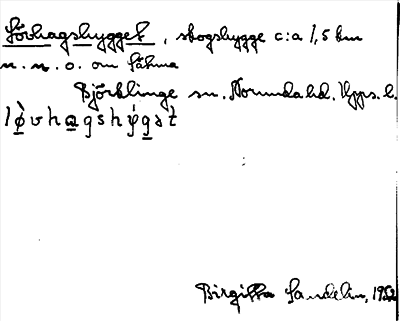 Lövhagshygget, skogshygge c:a 1,5 km
n. n. o. om Sätuna
Björklinge sn. Norunda hd. Upps. l.
løvhagshygət
Birgitta Sandelin, 1952